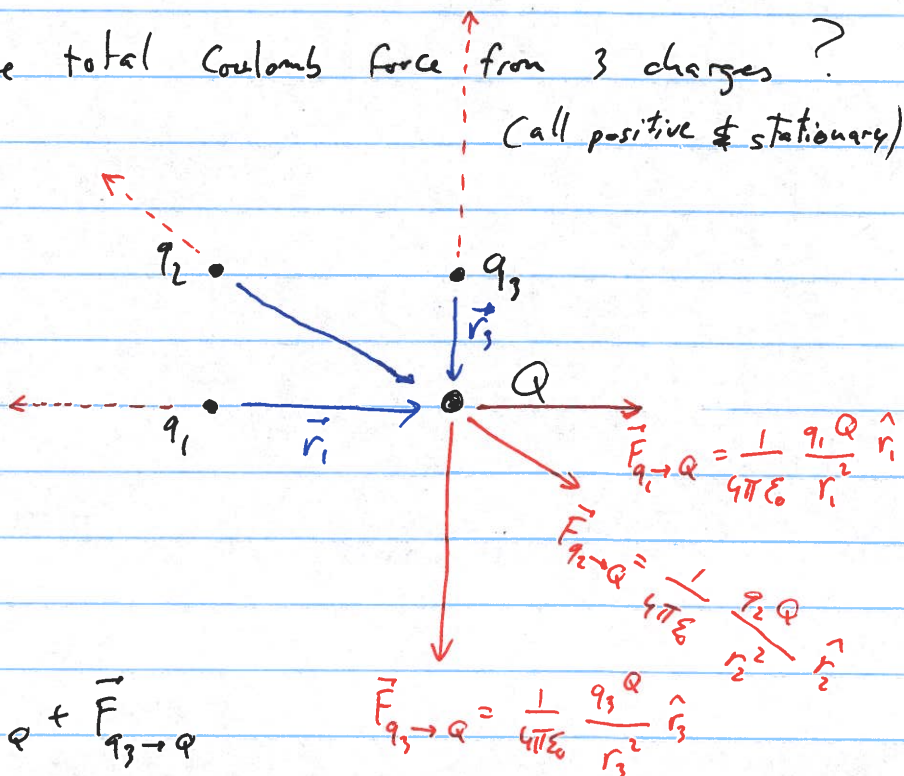 e total Coulomb force from 3 charges ?
(all positive & stationary)
q₂
q₃
r⃗₃
Q
q₁
r⃗₁
F⃗_{q₁→Q} = 1/(4πε₀) q₁Q/r₁² r̂₁
F⃗_{q₂→Q} = 1/(4πε₀) q₂Q/r₂² r̂₂
Q + F⃗_{q₃→Q}
F⃗_{q₃→Q} = 1/(4πε₀) q₃Q/r₃² r̂₃